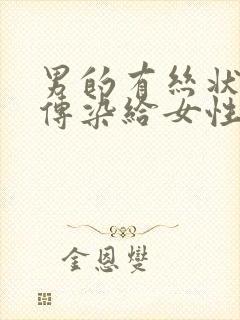 男的有丝状
傳染給女性
金恩燮